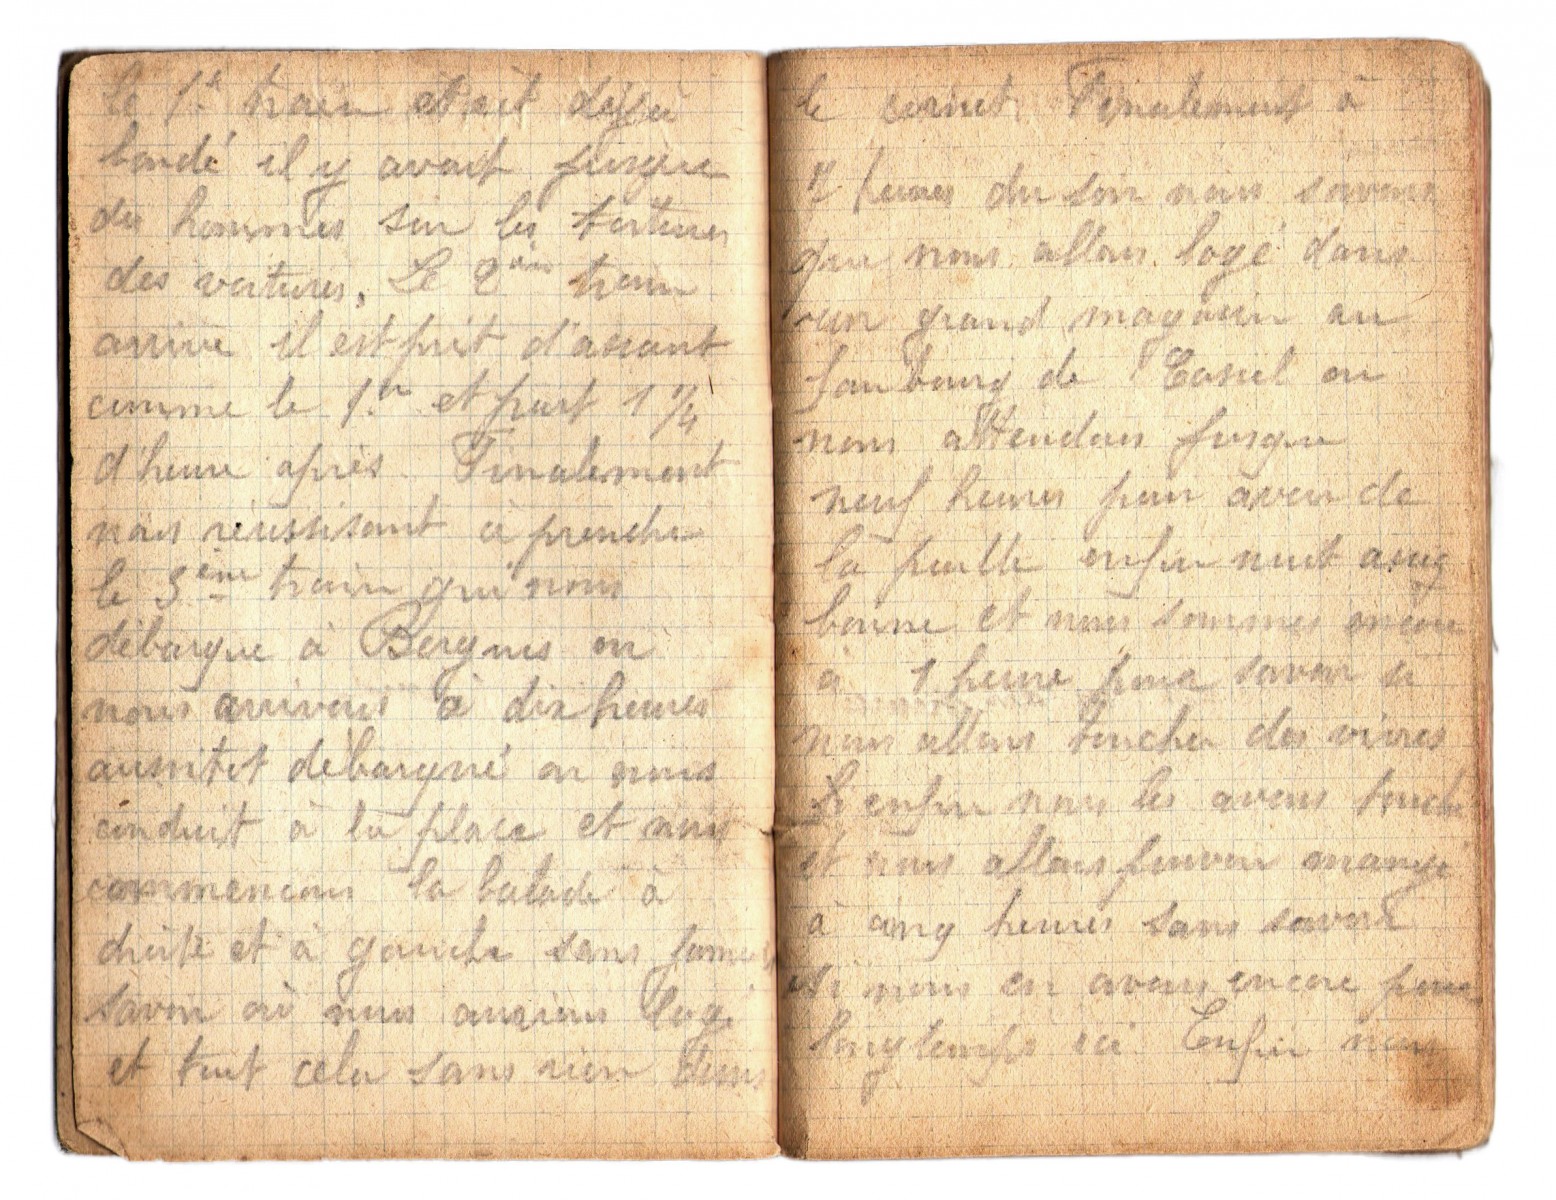 le 1er train etait déja
bondé il y avait jusque
des hommes sur les toitures
des voitures. Le 2ème train
arrive il est prit d'assaut
comme le 1er et part 1 1/4
d'heure après Finalement
nous réussisont à prendre
le 3ème train qui nous
débarque à Bergues ou
nous arrivons à dix heures
aussitot débarqué on nous
conduit à la place et nous
commencons la balade à
droite et à gauche sans jamais
savoir où nous aurions logé
et tout cela sans rien dans
le Finalement à
heures du soir nous savons
que nous allons logé dans
un grand magasin au
faubourg de Cassel ou
nous attendons jusque
neuf heures pour avoir de
la paille enfin nuit assez
bonne et nous sommes encore
a 1 heure pour savoir si
nous allons toucher des vivres
enfin nous les avons touché
et nous allons pouvoir manger
à cinq heures sans savoir
si nous en avons encore pour
longtemps ici Enfin nous